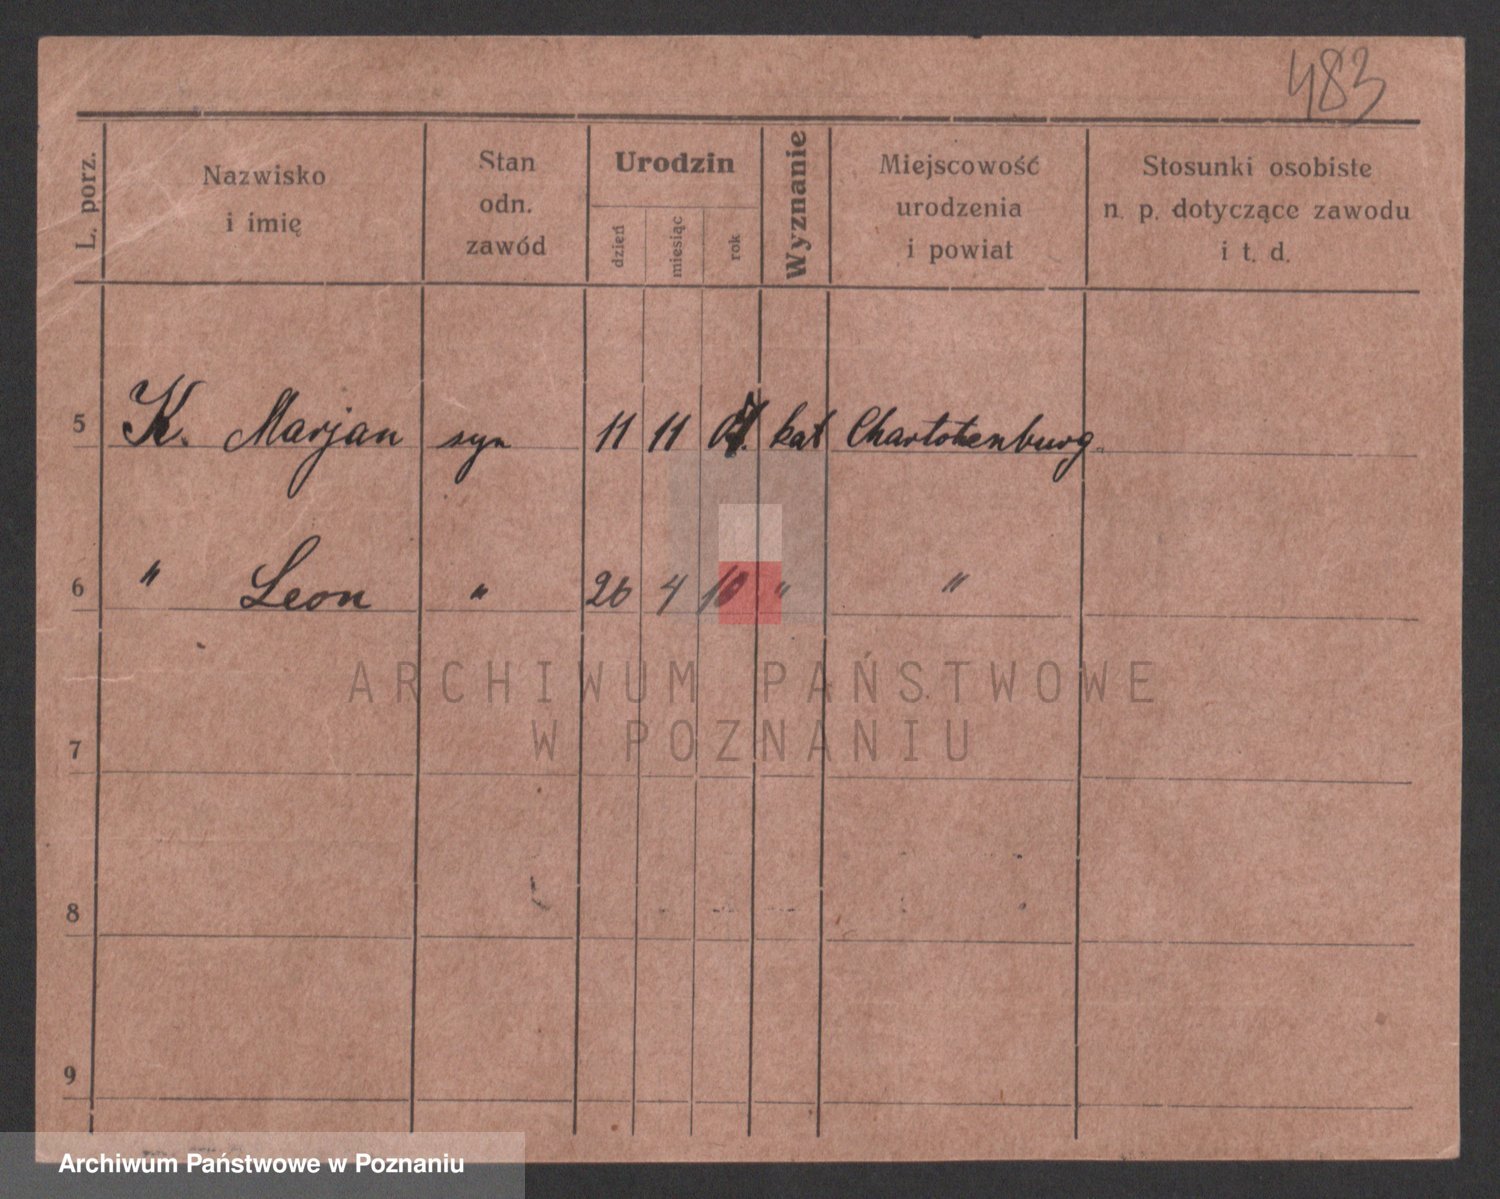 483
L. porz.
Nazwisko
i imię
Stan
odn.
zawód
Urodzin
dzień
miesiąc
rok
Wyznanie
Miejscowość
urodzenia
i powiat
Stosunki osobiste
n. p. dotyczące zawodu
i t. d.
5 K. Marjan syn 11 11 07. kat Charlottenburg.
6 " Leon " 26 4 10 " "
ARCHIWUM PAŃSTWOWE
W POZNANIU
7
8
9
Archiwum Państwowe w Poznaniu